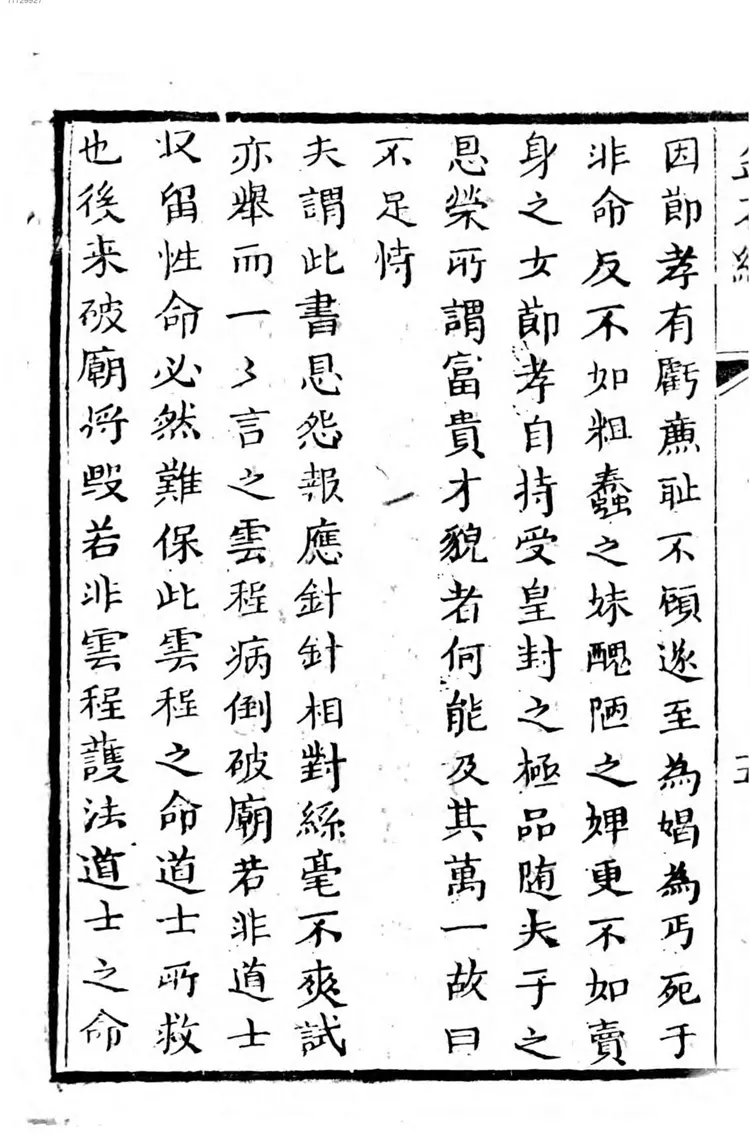 因節孝有虧廉耻不顧遂至為娼為丐死于
非命反不如粗蠢之妹醜陋之婢更不如賣
身之女節孝自持受皇封之極品随夫于之
恩榮所謂富貴才貌者何能及其萬一故曰
不足恃
夫謂此書恩怨報應針針相對絲毫不爽試
亦舉而一々言之雲程病倒破廟若非道士
収留性命必然難保此雲程之命道士所救
也後来破廟将毁若非雲程護法道士之命